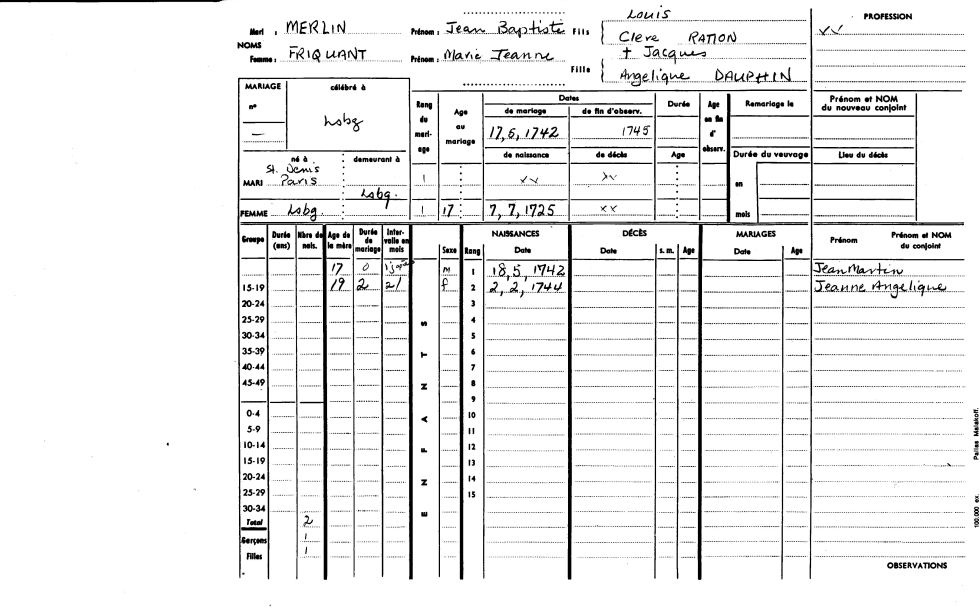 Louis
Mari : MERLIN Prénom : Jean Baptiste Fils Clere RATION
PROFESSION
xx
NOMS
Femme : FRIQUANT Prénom : Marie Jeanne Fille + Jacques
Angelique DAUPHIN
MARIAGE célébré à
n° —
Lsbg
Rang du mariage
Age au mariage
Dates
de mariage de fin d'observ.
17, 6, 1742 1745
Durée
Age en fin d'observ.
Remariage le
Prénom et NOM du nouveau conjoint
né à demeurant à
de naissance de décès Age
Durée du veuvage
Lieu du décès
MARI St. Denis Paris Lsbg. 1 xx xx
en
FEMME Lsbg. 1 17 7, 7, 1725 xx
mois
Groupe Durée (ans) Nbre de nais. Age de la mère Durée de mariage Inter-valle en mois Sexe Rang
NAISSANCES Date
DÉCÈS Date s. m. Age
MARIAGES Date Age
Prénom Prénom et NOM du conjoint
17 0 M 1 18, 5, 1742 Jean Martin
15-19 19 2 21 f 2 2, 2, 1744 Jeanne Angelique
20-24 3
25-29 4
30-34 5
35-39 6
40-44 7
45-49 8
9
0-4 10
5-9 11
10-14 12
15-19 13
20-24 14
25-29 15
30-34
ENFANTS
Total 2
Garçons 1
Filles 1
OBSERVATIONS
100.000 ex. Pairies Malakoff.